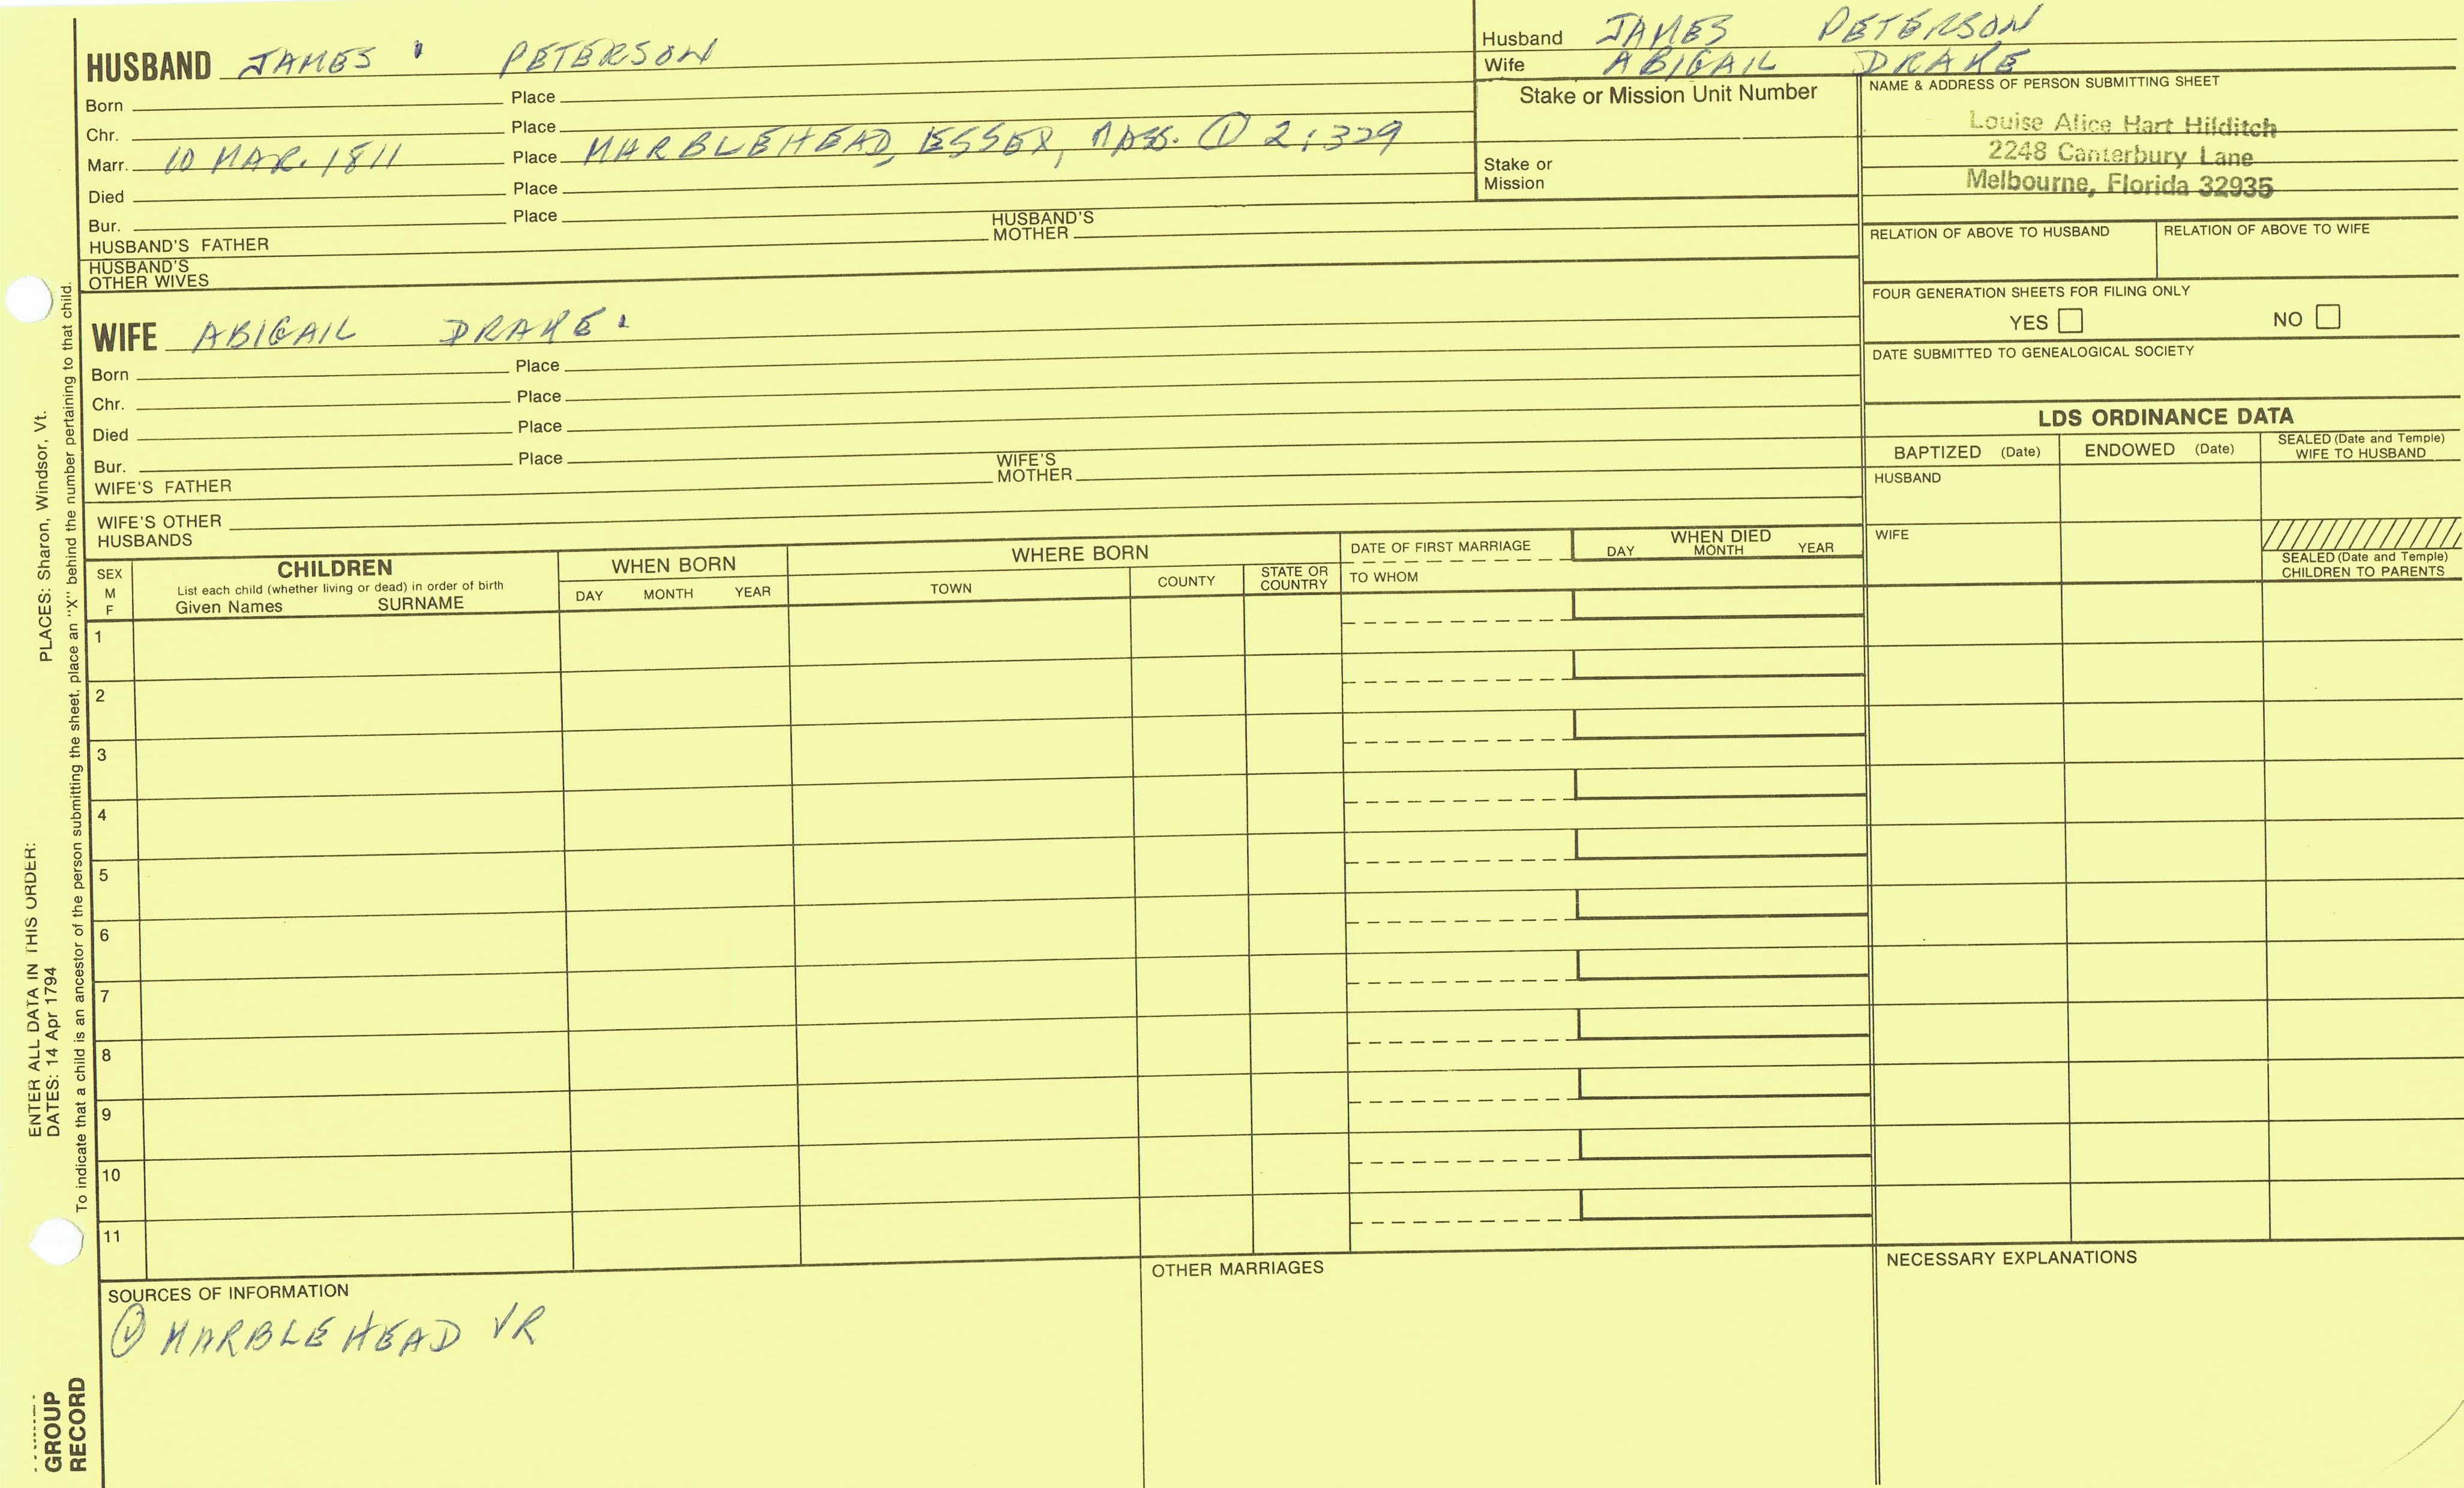 HUSBAND JAMES PETERSON
Born Place
Chr. Place
Marr. 10 MAR. 1811 Place MARBLEHEAD, ESSEX, MASS. ① 2:329
Died Place
Bur. Place
HUSBAND'S FATHER HUSBAND'S MOTHER
HUSBAND'S
OTHER WIVES
WIFE ABIGAIL DRAKE
Born Place
Chr. Place
Died Place
Bur. Place
WIFE'S FATHER WIFE'S MOTHER
WIFE'S OTHER
HUSBANDS
Husband JAMES PETERSON
Wife ABIGAIL DRAKE
Stake or Mission Unit Number
Stake or
Mission
NAME & ADDRESS OF PERSON SUBMITTING SHEET
Louise Alice Hart Hilditch
2248 Canterbury Lane
Melbourne, Florida 32935
RELATION OF ABOVE TO HUSBAND RELATION OF ABOVE TO WIFE
FOUR GENERATION SHEETS FOR FILING ONLY
YES NO
DATE SUBMITTED TO GENEALOGICAL SOCIETY
LDS ORDINANCE DATA
BAPTIZED (Date) ENDOWED (Date) SEALED (Date and Temple)
WIFE TO HUSBAND
HUSBAND
WIFE
SEALED (Date and Temple)
CHILDREN TO PARENTS
SEX
M
F
CHILDREN
List each child (whether living or dead) in order of birth
Given Names SURNAME
WHEN BORN
DAY MONTH YEAR
WHERE BORN
TOWN COUNTY STATE OR
COUNTRY
DATE OF FIRST MARRIAGE
TO WHOM
WHEN DIED
DAY MONTH YEAR
1
2
3
4
5
6
7
8
9
10
11
SOURCES OF INFORMATION
① MARBLEHEAD VR
OTHER MARRIAGES
NECESSARY EXPLANATIONS
ENTER ALL DATA IN THIS ORDER:
DATES: 14 Apr 1794 PLACES: Sharon, Windsor, Vt.
To indicate that a child is an ancestor of the person submitting the sheet, place an "X" behind the number pertaining to that child.
GROUP
RECORD